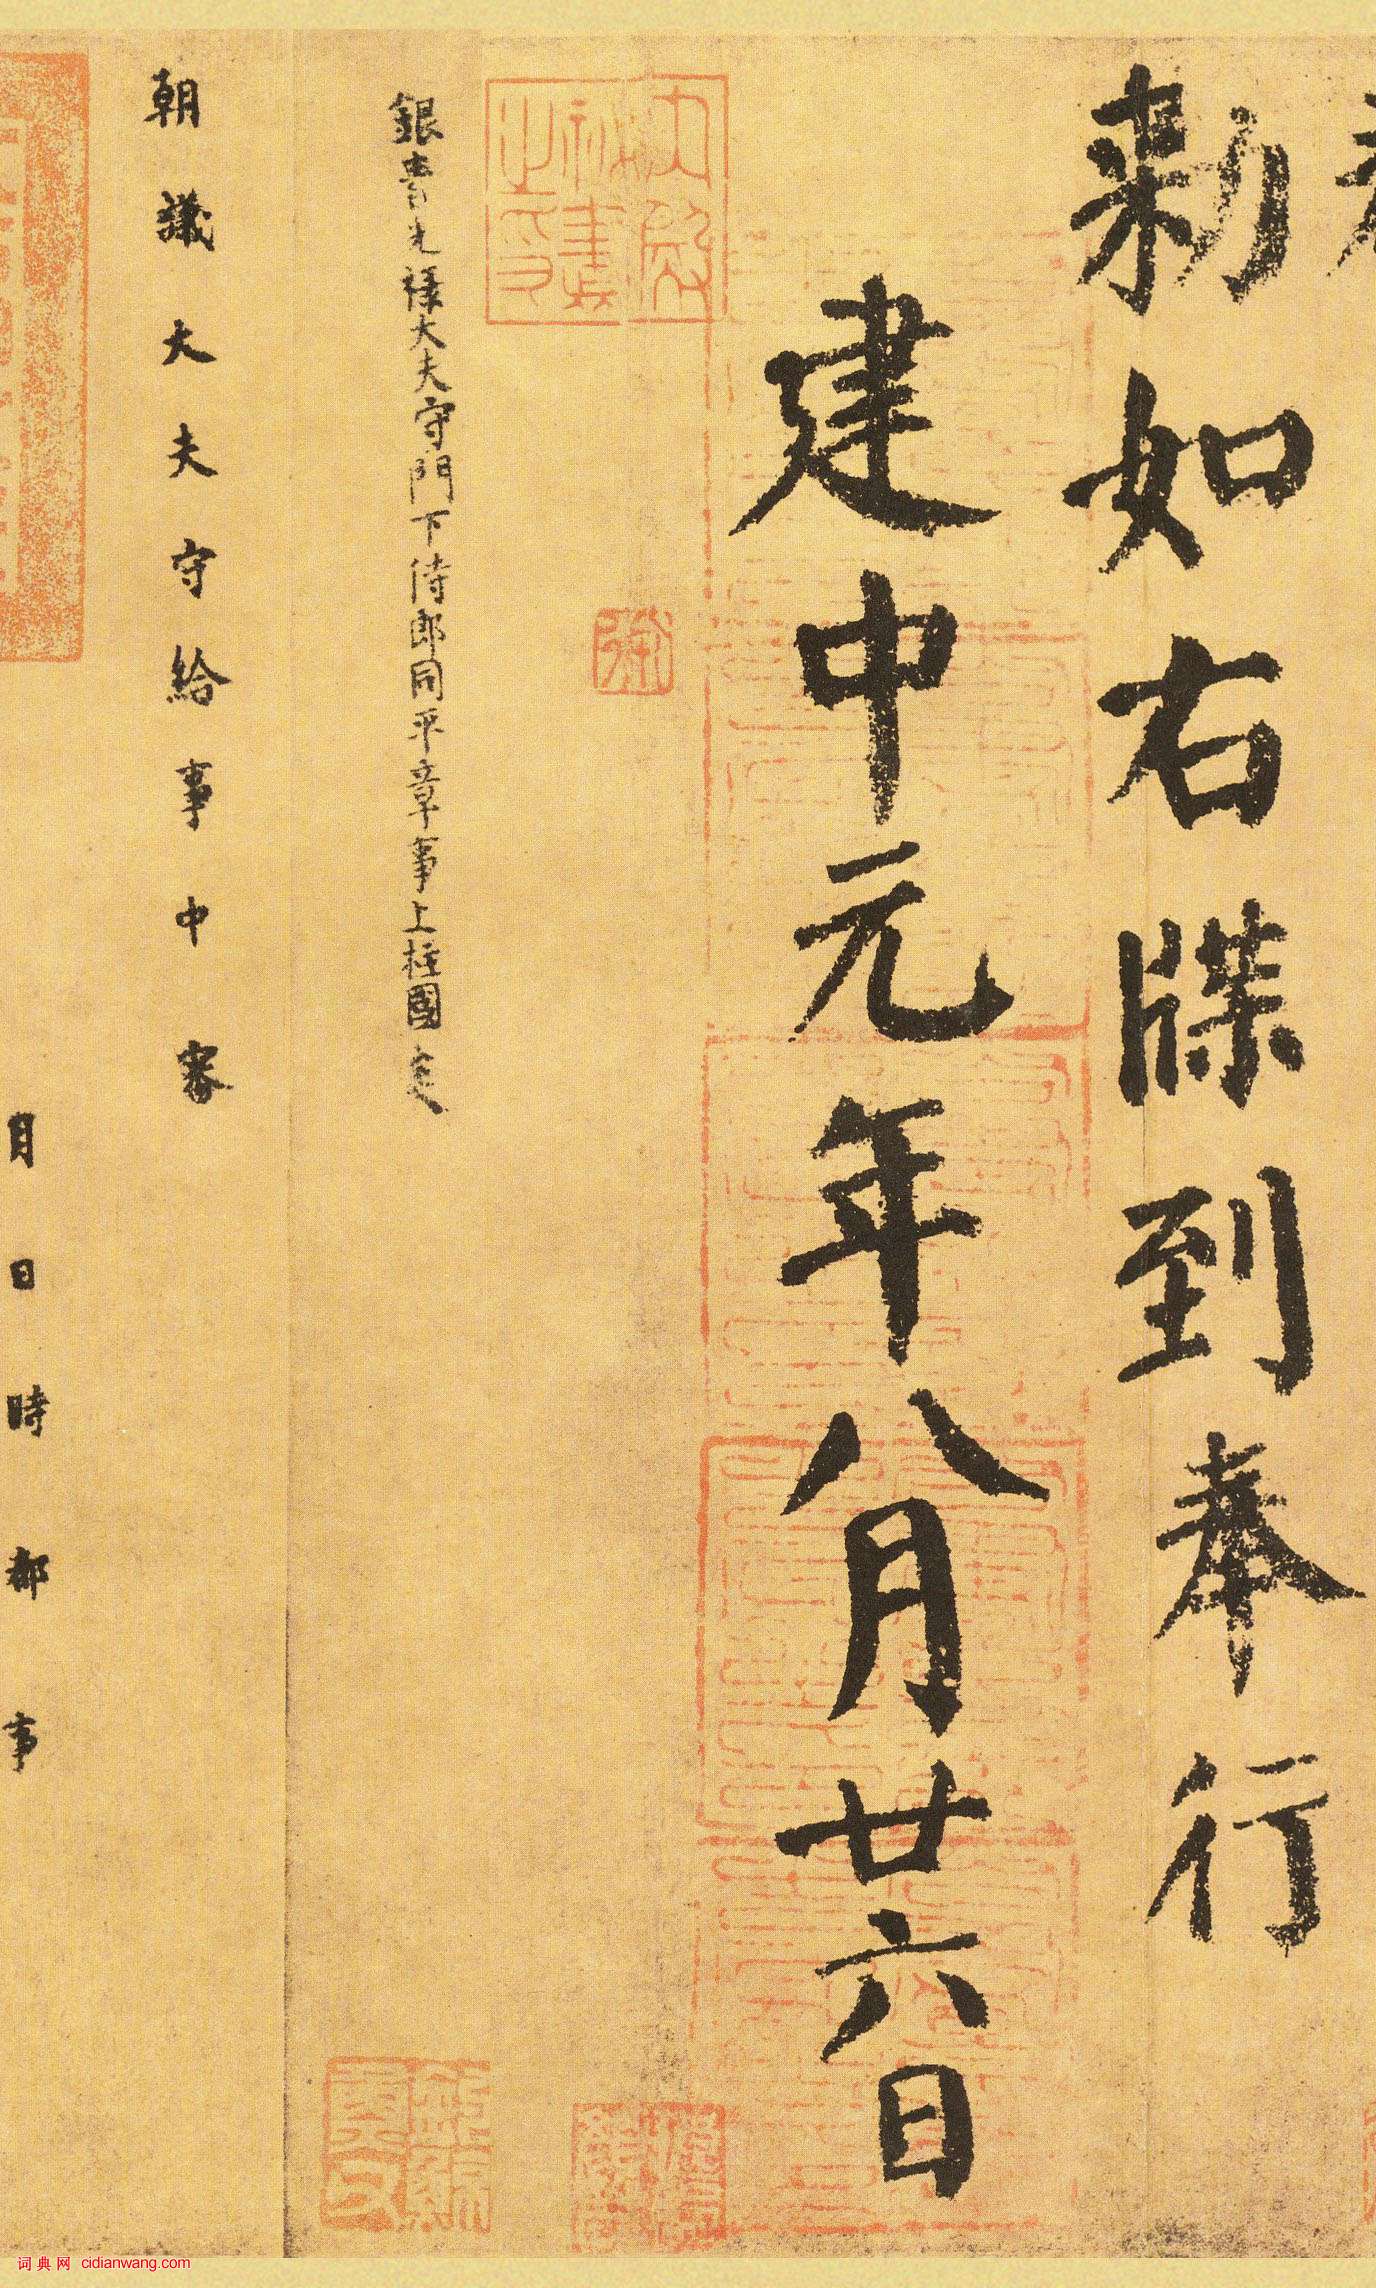 勑如右牒到奉行
建中元年八月廿六日
銀青光祿大夫守門下侍郎同平章事上柱國炎
朝議大夫守給事中審
月日時都事
词典网 cidianwang.com